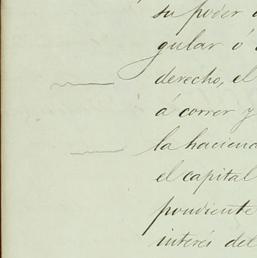 su poder
gular ó
derecho, el
á correr y
la hacienda
el capital
pondiente
interés del